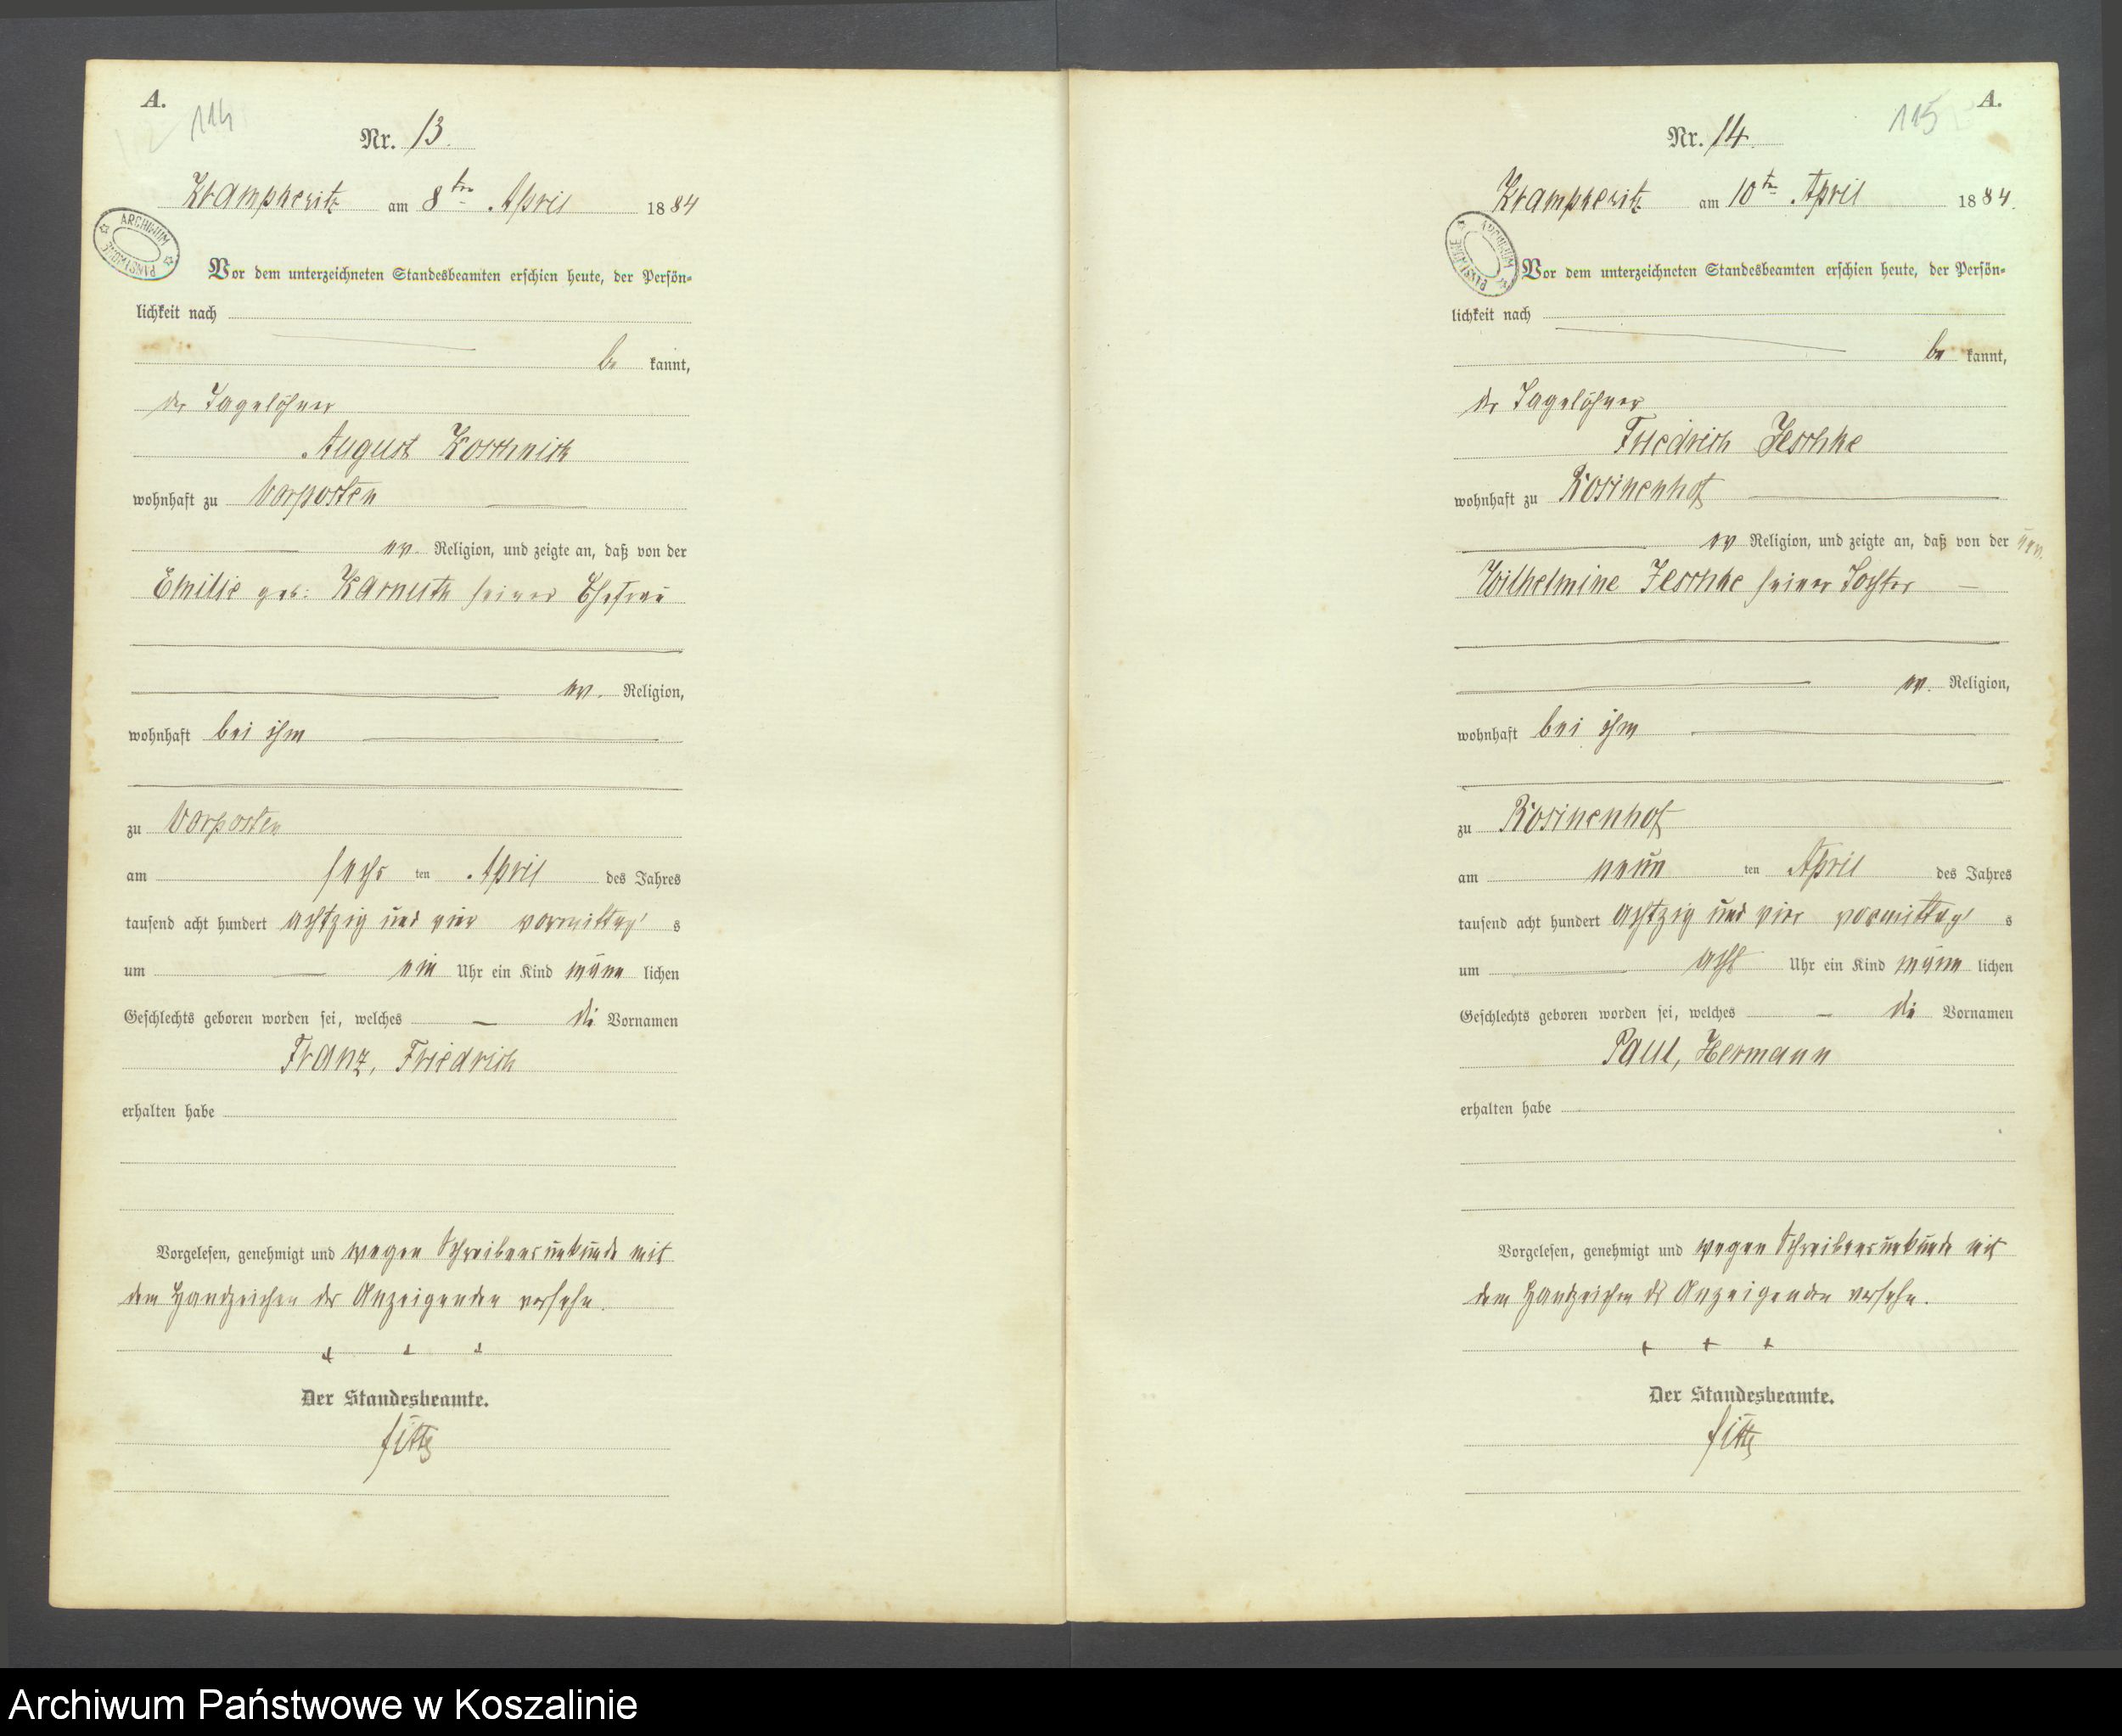 A.
114
Nr. 13.
Krampkewitz am 8ten April 1884
ARCHIWUM PAŃSTWOWE
Vor dem unterzeichneten Standesbeamten erschien heute, der Persön-
lichkeit nach
be kannt,
der Tagelöhner
August Koschnick
wohnhaft zu Vorposten
ev. Religion, und zeigte an, daß von der
Emilie geb: Karnuth seiner Ehefrau
ev. Religion,
wohnhaft bei ihm
zu Vorposten
am sechs ten April des Jahres
tausend acht hundert achtzig und vier vormittag s
um ein Uhr ein Kind männ lichen
Geschlechts geboren worden sei, welches die Vornamen
Franz, Friedrich
erhalten habe
Vorgelesen, genehmigt und wegen Schreibensunkunde mit
dem Handzeichen des Anzeigenden versehn.
+ + +
Der Standesbeamte.
A.
115
Nr. 14.
Krampkewitz am 10ten April 1884.
ARCHIWUM PAŃSTWOWE
Vor dem unterzeichneten Standesbeamten erschien heute, der Persön-
lichkeit nach
be kannt,
der Tagelöhner
Friedrich Jeschke
wohnhaft zu Rosinenhof
ev Religion, und zeigte an, daß von der
Wilhelmine Jeschke seiner Tochter
ev. Religion,
wohnhaft bei ihm
zu Rosinenhof
am neun ten April des Jahres
tausend acht hundert achtzig und vier vormittag s
um acht Uhr ein Kind männ lichen
Geschlechts geboren worden sei, welches die Vornamen
Paul, Hermann
erhalten habe
Vorgelesen, genehmigt und wegen Schreibensunkunde mit
dem Handzeichen des Anzeigenden versehn.
+ + +
Der Standesbeamte.
Archiwum Państwowe w Koszalinie